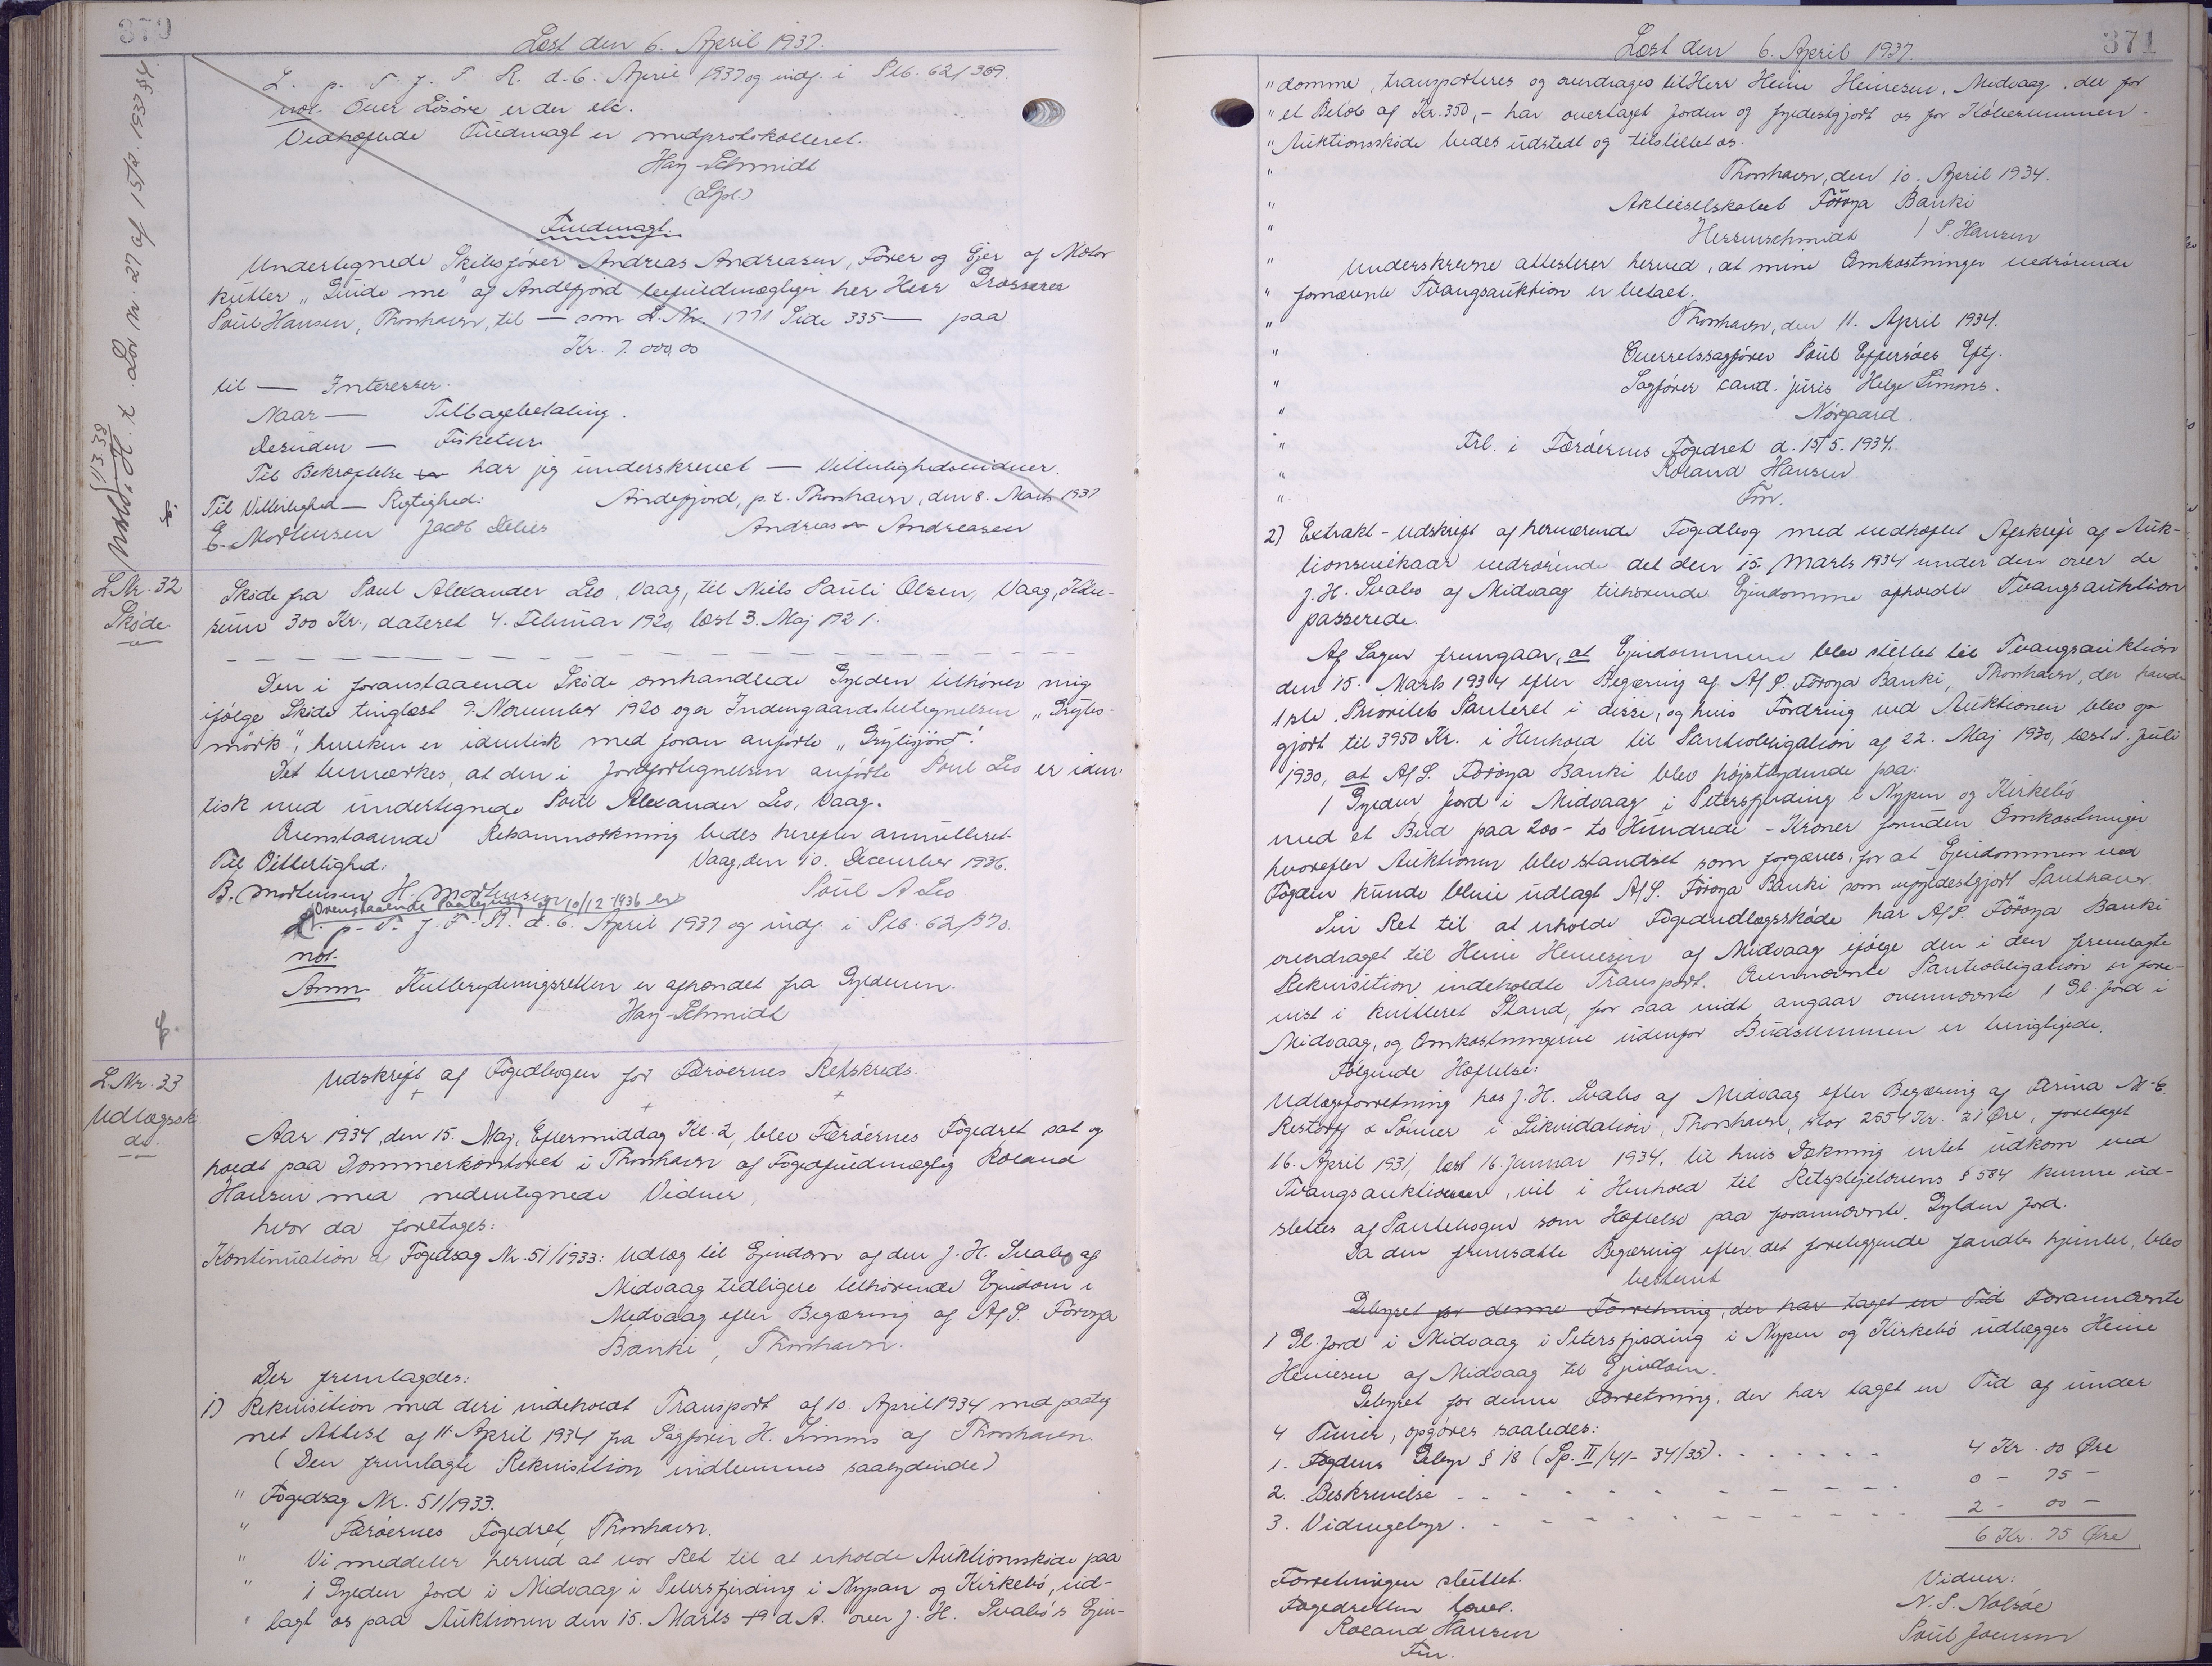 370
Læst den 6. April 1937.
L. p. T. f. F. R. d. 6. April 1937 og indf. i Plb. 62/369.
not. Over Lösöre er der etc.
Vedhæftede Fuldmagt er medprotokolleret.
Hay-Schmidt
(Lspl.)
Fuldmagt.
Undertegnede Skibsfører Andreas Andreasen, Fører og Ejer af Motor
kutter "Guide me" af Andefjord befuldmægtiger her Herr Grosserer
Poul Hansen, Thorshavn, til — som L. Nr. 1771 Side 335 — paa
Kr. 7.000,00
til — Interesser.
Naar — Tilbagebetaling.
Desuden — Fisketure
Til Bekræftelse har jeg underskrevet — Vitterlighedsvidner.
Til Vitterlighed — Rigtighed: Andefjord, p.t. Thorshavn, den 8. Marts 1937
E. Mortensen Jacob Andreas Andreasen
Lov nr. 27 af 15/2. 1937
11338
L Nr. 32
Skøde
Skøde fra Poul Alexander Leo, Vaag, til Niels Pauli Olsen, Vaag, Købe-
sum 300 Kr., dateret 4. Februar 1920, læst 3. Maj 1921.
Den i foranstaaende Skøde omhandlede Gylden tilhører mig
ifølge Skøde tinglæst 9. November 1920 og er Indengaardsbetegnelsen "Grytis-
mörk", hvilken er identisk med foran anførte "Grytisjörd".
Det bemærkes, at den i Jordfortegnelsen anførte Poul Leo er iden-
tisk med undertegnede Poul Alexander Leo, Vaag.
Ovenstaaende Retsanmærkning bedes herefter annulleret.
Til Vitterlighed: Vaag, den 10. December 1936.
B. Mortensen H. Mortensen Poul A. Leo
Ovenstaaende Paategning af 10/12 1936 er
L. p. T. f. F. R. d. 6. April 1937 og indf. i Plb. 62/370.
not.
Anm. Kulbrydningsretten er afhændet fra Gyldenen.
Hay-Schmidt
L Nr. 33
Udlægsskö
de.
Udskrift af Fogedbogen for Færöernes Retskreds.
Aar 1934, den 15. Maj, Eftermiddag Kl. 2, blev Færöernes Fogedret sat og
holdt paa Dommerkontoret i Thorshavn af Fogedfuldmægtig Roland
Hansen med nedentegnede Vidner,
hvor da foretages:
Kontinuation af Fogedsag Nr. 51/1933: Udlæg til Ejendom af den J. H. Svabo af
Midvaag tidligere tilhörende Ejendom i
Midvaag efter Begæring af A/S. Föroya
Banki, Thorshavn.
Der fremlagdes:
1) Rekvisition med deri indeholdt Transport af 10. April 1934 med paateg
net Attest af 11 April 1934 fra Sagfører H. Simms af Thorshavn
(Den fremlagte Rekvisition indlemmes saalydende)
" Fogedsag Nr. 51/1933.
" Færöernes Fogedret, Thorshavn.
" Vi meddeler herved at vor Ret til at erholde Auktionsskøde paa
" 1 Gylden Jord i Midvaag i Petersfjerding i Nypan og Kirkebö, ud-
" lagt os paa Auktionen den 15. Marts d A. over J. H. Svabó's Ejen-
371
Læst den 6. April 1937.
" domme, transporteres og overdrages til Herr Heine Heinesen, Midvaag, der for
" et Beløb af Kr. 350,- har overtaget Jorden og fyldestgjort os for Købesummen.
" Auktionsskøde bedes udstedt og tilstillet os.
" Thorshavn, den 10. April 1934.
" Aktieselskabet Föroya Banki
" Herrnschmidt / P. Hansen
" Underskrevne attesterer herved, at mine Omkostninger vedrørende
" fornævnte Tvangsauktion er betalt.
" Thorshavn, den 11. April 1934.
" Overretssagfører Poul Effersöes Eftf.
" Sagfører cand. juris Helge Simms.
" Nørgaard.
" Frl. i Færöernes Fogedret d. 15/5. 1934.
" Roland Hansen
" Fm.
2) Extrakt-Udskrift af herværende Fogedbog med vedhæftet Afskrift af Auk-
tionsvilkaar vedrørende det den 15. Marts 1934 under den over de
J. H. Svabo af Midvaag tilhørende Ejendomme afholdte Tvangsauktion
passerede.
Af Sagen fremgaar, at Ejendommene blev stillet til Tvangsauktion
den 15. Marts 1934 efter Begæring af A/S. Föroya Banki, Thorshavn, der havde
1ste Prioritets Panteret i disse, og hvis Fordring ved Auktionen blev op
gjort til 3950 Kr. i Henhold til Pantobligation af 22. Maj 1930, læst 1. Juli
1930, at A/S. Föroya Banki blev højstbydende paa:
1 Gylden Jord i Midvaag i Petersfjerding i Nypan og Kirkebö
med et Bud paa 200 - to Hundrede - Kroner foruden Omkostninger
hvorefter Auktionen blev standset som forgæves, for at Ejendommen ved
Fogden kunde blive udlagt A/S. Föroya Banki som ufyldestgjort Panthaver.
Sin Ret til at erholde Fogedudlægsskøde har A/S. Föroya Banki
overdraget til Heine Heinesen af Midvaag ifølge den i den fremlagte
Rekvisition indeholdte Transport. Ovennævnte Pantobligation er fore-
vist i kvitteret Stand, for saa vidt angaar ovennævnte 1 Gl. Jord i
Midvaag, og Omkostningerne udenfor Budsummen er berigtigede.
Følgende Hæftelse:
Udlægsforretning hos J. H. Svabo af Midvaag efter Begæring af Firma M. C.
Restorff & Sönner i Likvidation, Thorshavn, stor 2554 Kr. 21 Øre, foretaget
16. April 1931, læst 16. Januar 1934, til hvis Dækning intet udkom ved
Tvangsauktionen, vil i Henhold til Retsplejelovens § 584 kunne ud-
slettes af Pantebogen som Hæftelse paa forannævnte Gylden Jord.
Da den fremsatte Begæring efter det foreliggende fandtes hjemlet, blev
bestemt
Gebyret for denne Forretning, der har taget en Tid Forannævnte
1 Gl. Jord i Midvaag i Petersfjerding i Nypen og Kirkebö udlægges Heine
Heinesen af Midvaag til Ejendom.
Gebyret for denne Forretning, der har taget en Tid af under
4 Timer, opgøres saaledes:
1. Fogdens Gebyr § 18 (Sp. II/41-34/35) . . . . . . 4 Kr. 00 Øre
2. Beskrivelse - - - - - - - - 0 - 75 -
3. Vidnegebyr. - - - - - - - - 2 - 00 -
6 Kr. 75 Øre
Forretningen sluttet.
Fogedretten hævet.
Roland Hansen
Fm.
Vidner:
N. P. Nolsøe
Poul Joensen